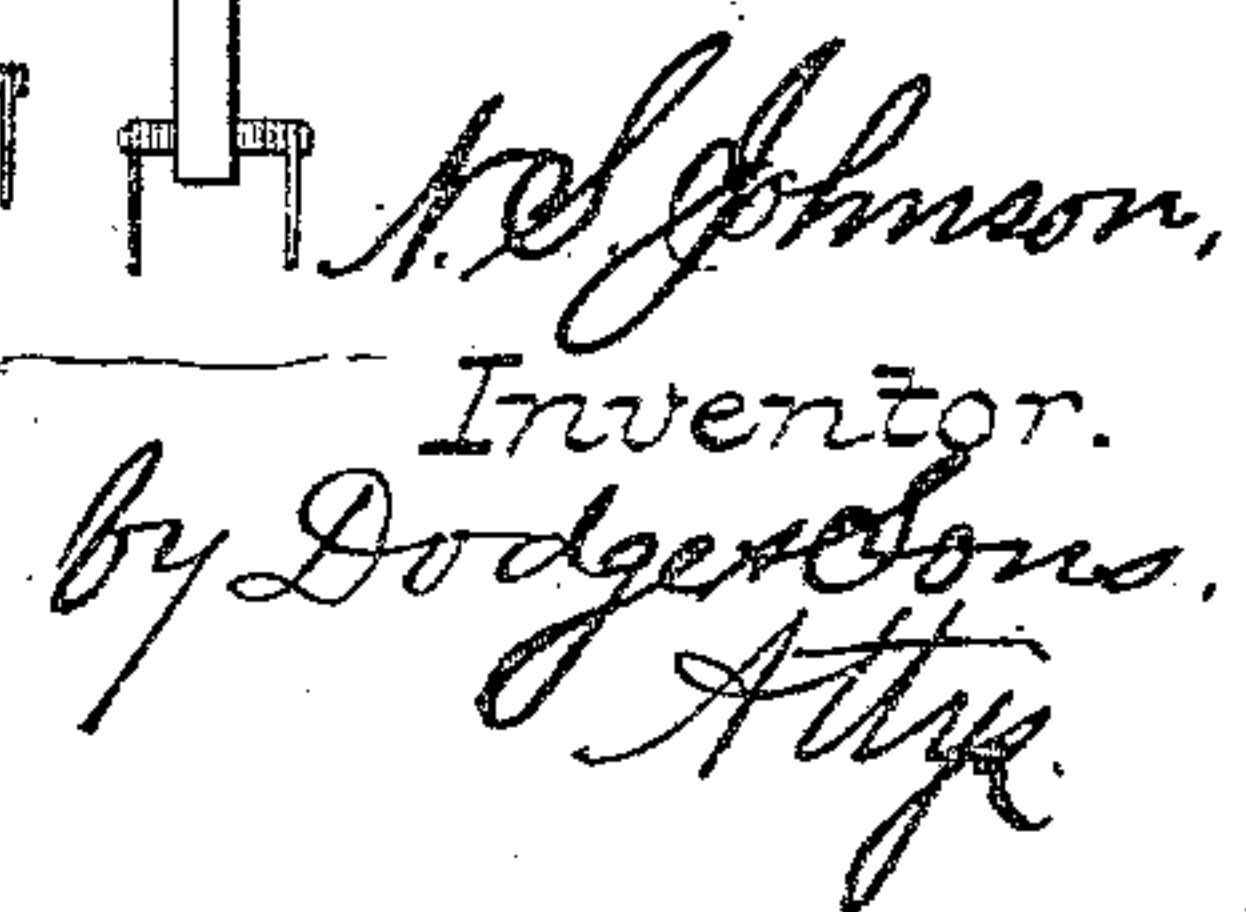 N. S. Johnson,
Inventor.
by Dodger & Sons.
Attys.